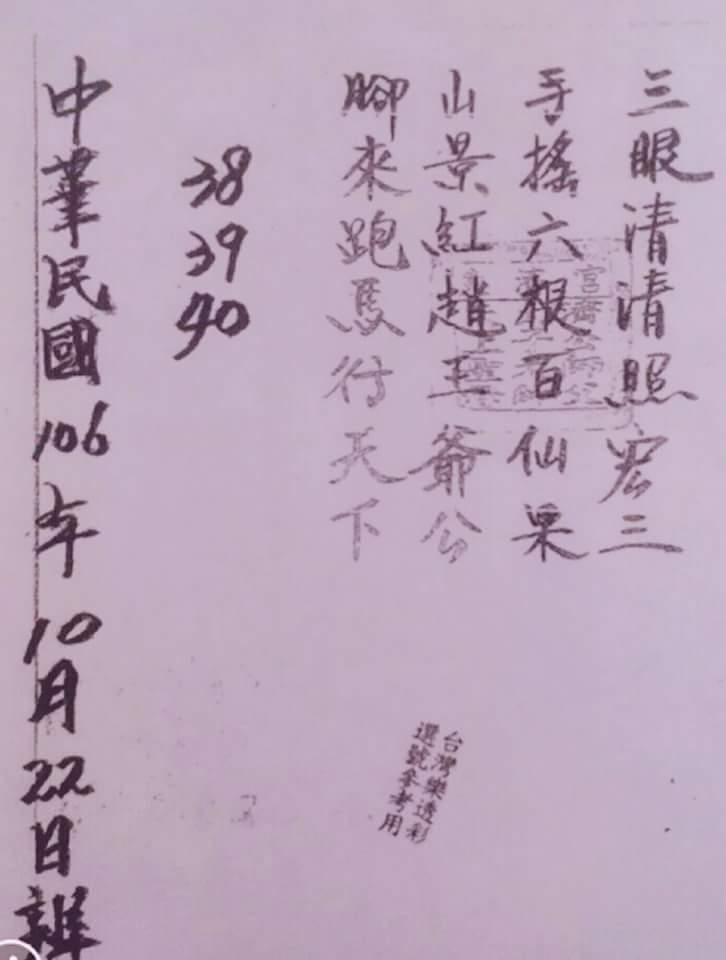 三眼清清照宏三
手搖六根百仙果
山景紅趙王爺公
腳來跑馬行天下
38
39
40
中華民國106年10月22日辦
台灣樂透彩
選號參考用